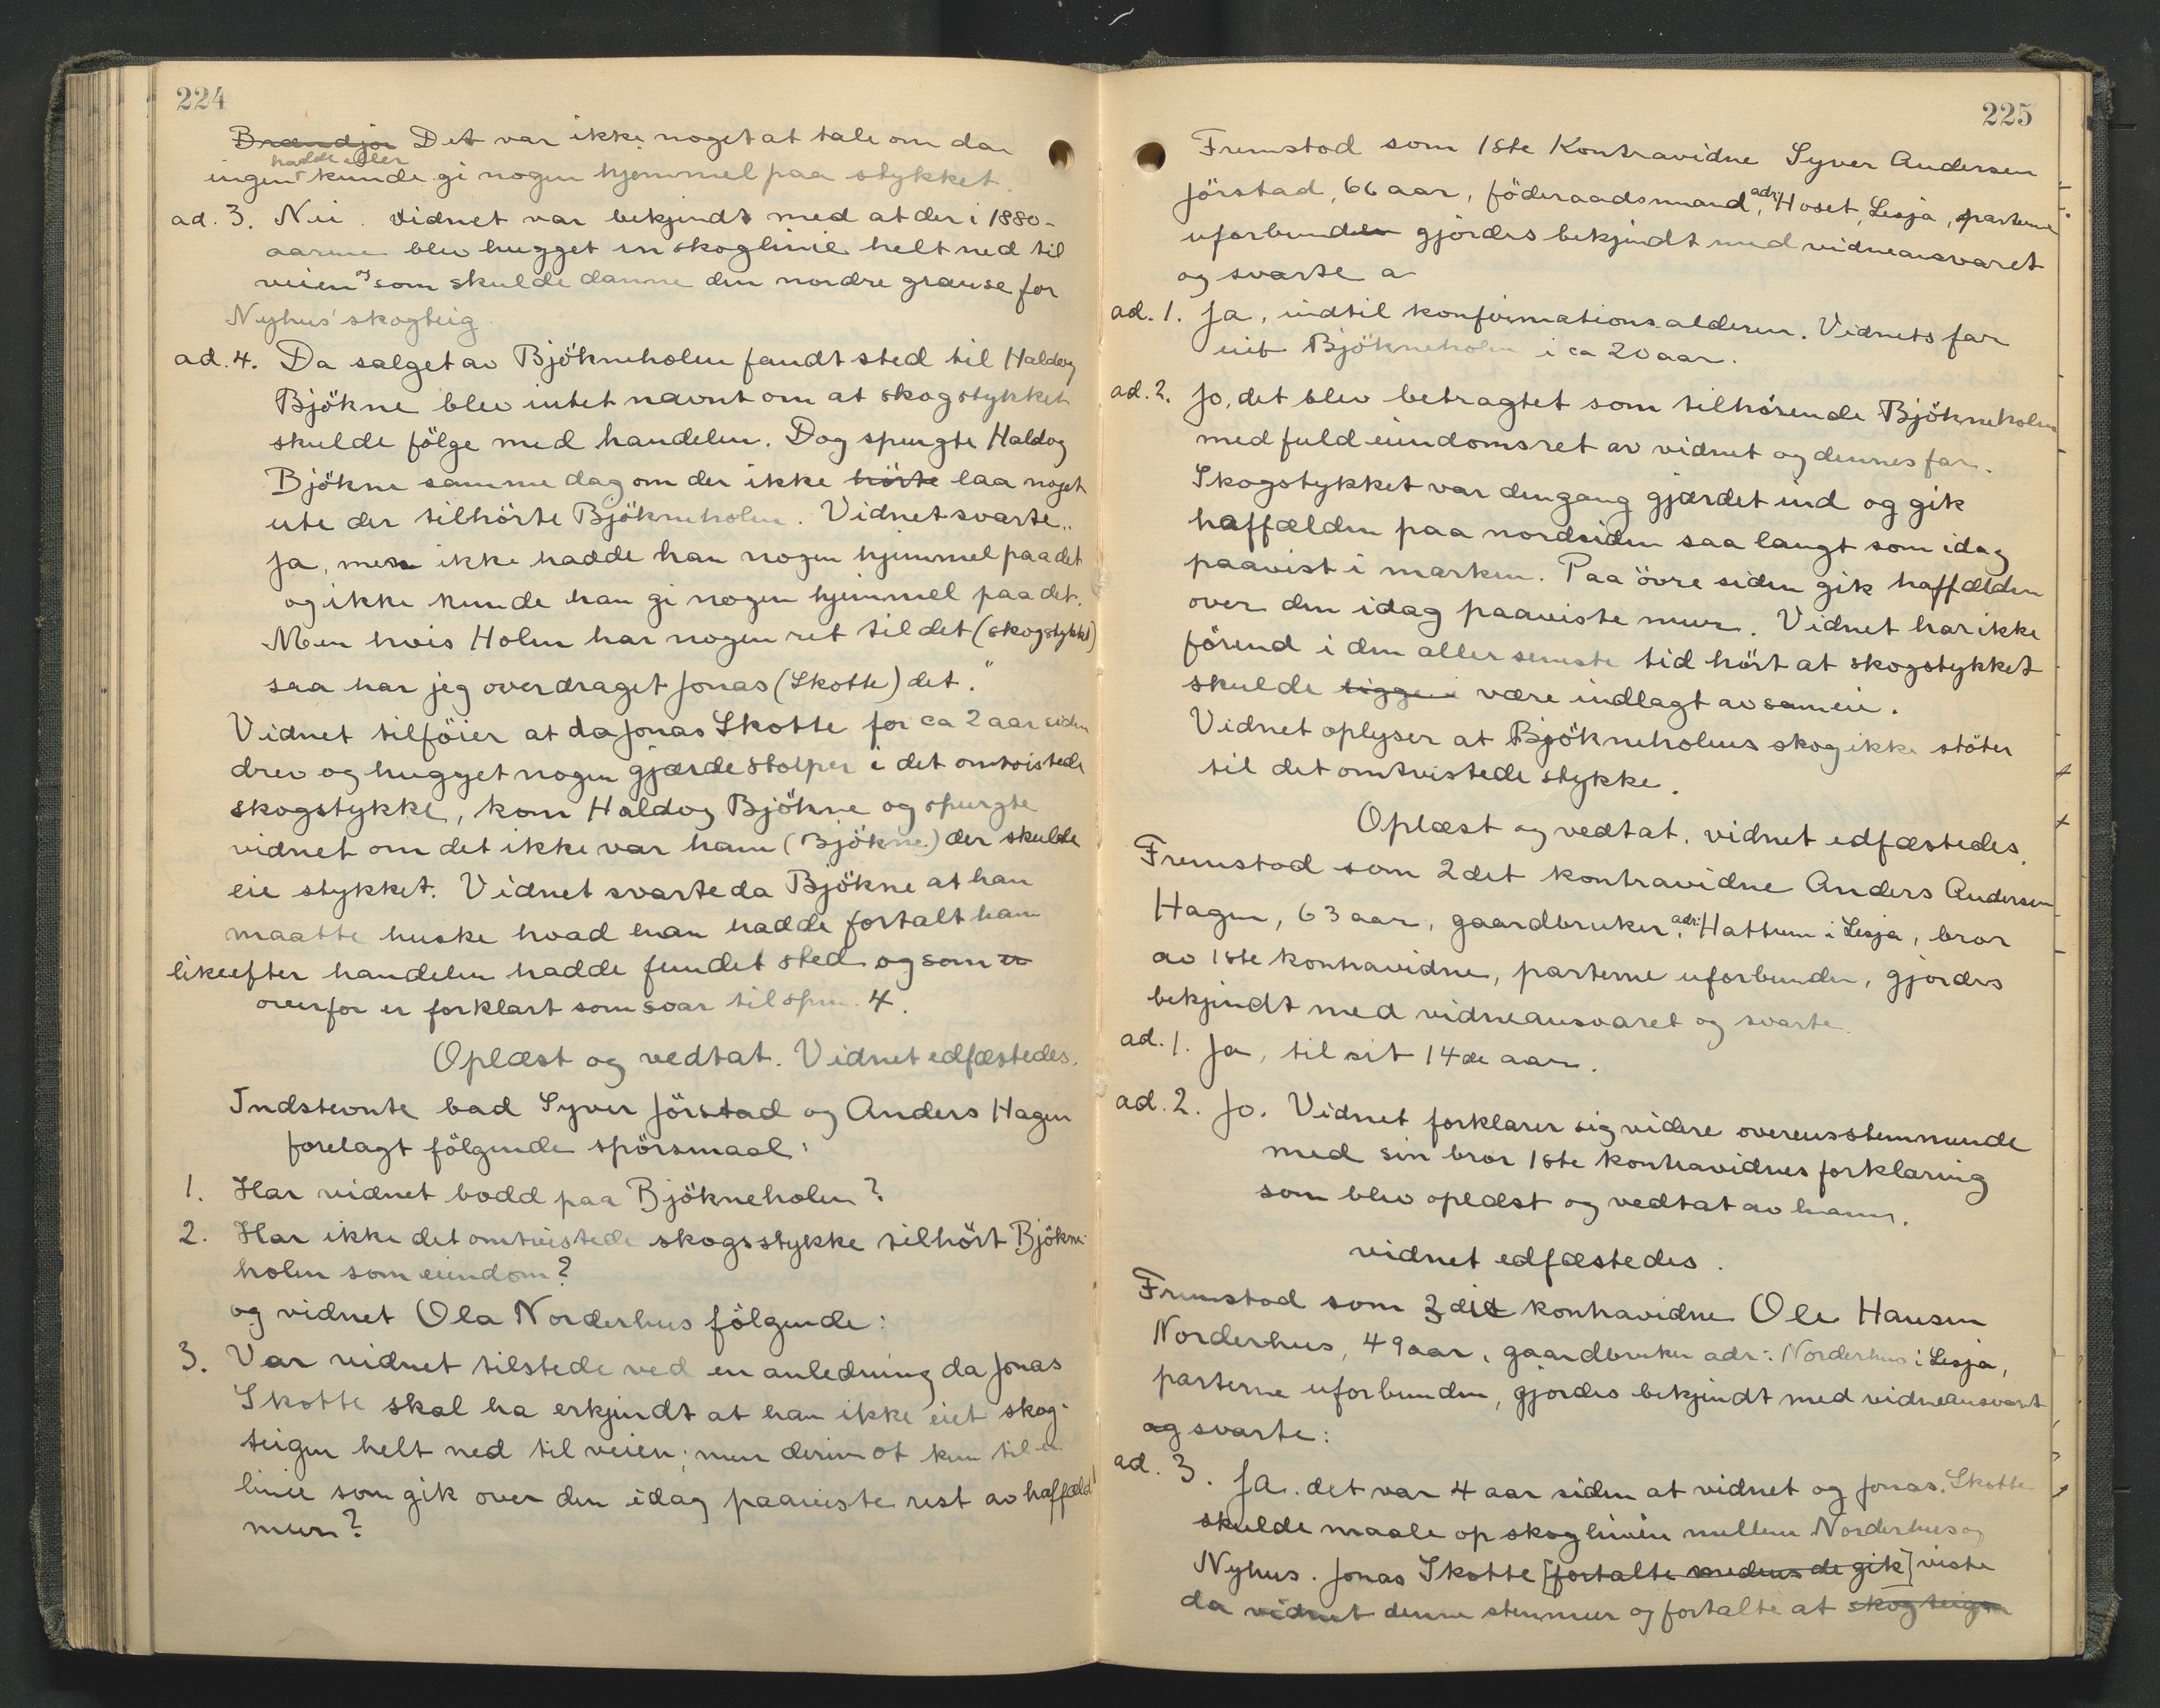 224
Brændjor Det var ikke noget at tale om da
hadde eller
ingen kunde gi nogen hjemmel paa stykket.
ad. 3. Nei. Vidnet var bekjendt med at der i 1880-
aarene blev hugget en skoglinie helt ned til
veien og som skulde danne den nordre grænse for
Nyhus' skogteig.
ad. 4. Da salget av Bjökneholen fandt sted til Haldog
Bjökne blev intet nævnt om at skogstykket
skulde fölge med handelen. Dog spurgte Haldog
Bjökne samme dag om der ikke hörte laa noget
ute der tilhörte Bjökneholen. Vidnet svarte „
Ja, men ikke hadde han nogen hjemmel paa det
og ikke kunde han gi nogen hjemmel paa det.
Men hvis Holen har nogen ret til det (skogstykket)
saa har jeg overdraget Jonas (Skotte) det."
Vidnet tilföier at da Jonas Skotte for ca 2 aar siden
drev og hugget nogen gjærdestolper i det omtvistede
skogstykke, kom Haldog Bjökne og spurgte
vidnet om det ikke var ham (Bjökne) der skulde
eie stykket. Vidnet svarte da Bjökne at han
maatte huske hvad han hadde fortalt ham
likeefter handelen hadde fundet sted og som er
overfor er forklart som svar til spm. 4.
Oplæst og vedtat. Vidnet edfæstedes.
Indstevnte bad Syver Jörstad og Anders Hagen
forelagt fölgende spörsmaal:
1. Har vidnet bodd paa Bjökneholen?
2. Har ikke det omtvistede skogsstykke tilhört Bjökne-
holen som eiendom?
og vidnet Ola Norderhus fölgende:
3. Var vidnet tilstede ved en anledning da Jonas
Skotte skal ha erkjendt at han ikke eiet skog-
teigen helt ned til veien; men derimot kun til en
linie som gik over den idag paaviste rest av haffæld
muren?
225
Fremstod som 1ste Kontravidne Syver Andersen
Jörstad, 66 aar, föderaadsmand, adr. Hoset, Lesja, parterne
uforbunden gjördes bekjendt med vidneansvaret
og svarte a
ad. 1. Ja, indtil konfirmationsalderen. Vidnets far
eiet Bjökneholen i ca 20 aar.
ad. 2. Jo, det blev betragtet som tilhörende Bjökneholen
med fuld eiendomsret av vidnet og dennes far.
Skogstykket var dengang gjærdet ind og gik
haffælden paa nordsiden saa langt som idag
paavist i marken. Paa övre siden gik haffælden
over den idag paaviste mur. Vidnet har ikke
förend i den aller seneste tid hört at skogstykket
skulde ligge i være indlagt av sameie.
Vidnet oplyser at Bjökneholens skog ikke stöter
til det omtvistede stykke.
Oplæst og vedtat. vidnet edfæstedes.
Fremstod som 2det kontravidne Anders Andersen
Hagen, 63 aar, gaardbruker, adr: Hattrem i Lesja, bror
av 1ste kontravidne, parterne uforbunden, gjordes
bekjendt med vidneansvaret og svarte.
ad. 1. Ja, til sit 14de aar.
ad. 2. Jo. Vidnet forklarer sig videre overensstemmende
med sin bror 1ste kontravidnes forklaring
som blev oplæst og vedtat av ham.
vidnet edfæstedes.
Fremstod som 3die kontravidne Ole Hansen
Norderhus, 49 aar, gaardbruker adr: Norderhus i Lesja,
parterne uforbunden, gjordes bekjendt med vidneansvaret
og svarte:
ad. 3. Ja. det var 4 aar siden at vidnet og Jonas Skotte
skulde maale op skoglinien mellem Norderhus og
Nyhus. Jonas Skotte [fortalte medens de gik] viste
da vidnet denne stenmur og fortalte at skogteigen